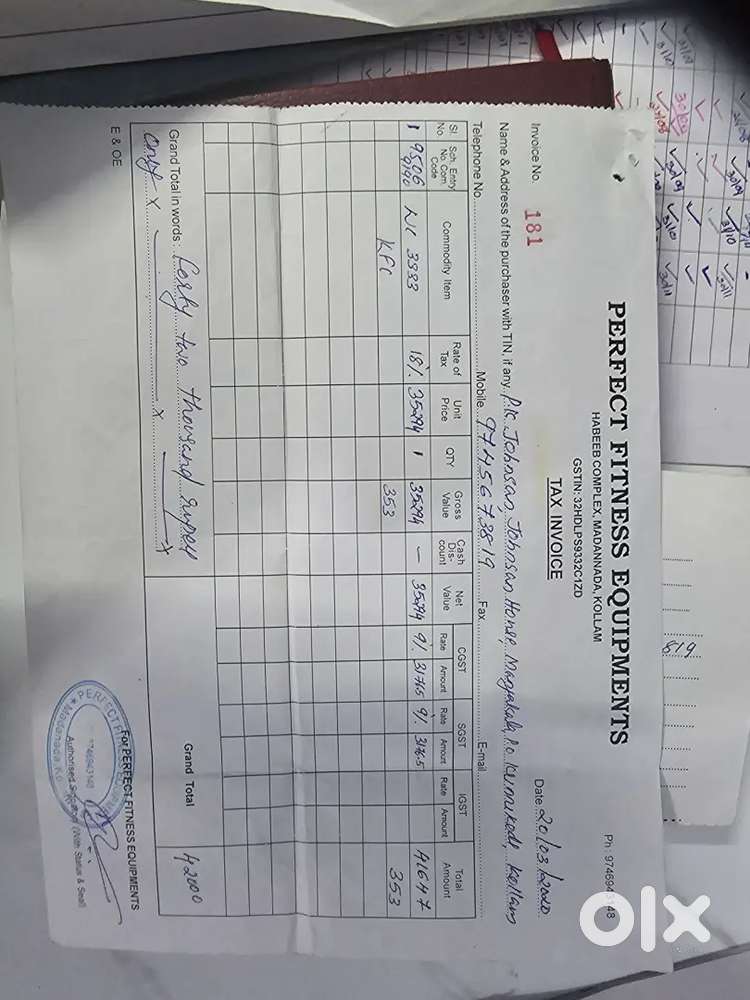 PERFECT FITNESS EQUIPMENTS
HABEEB COMPLEX, MADANNADA, KOLLAM
GSTIN: 32HDLPS9332C1ZD
Ph : 9746943148
TAX INVOICE
Invoice No. 181
Date 20/03/2020
Name & Address of the purchaser with TIN, if any. Johnson, Johnson House, P.O, Kollam
Telephone No. Mobile 9745673819 Fax E-mail
Sl. No Sch. Entry No Com. Code Commodity Item Rate of Tax Unit Price QTY Gross Value Cash Discount Net Value CGST Rate Amount SGST Rate Amount IGST Rate Amount Total Amount
1 9506 3333 18% 35294 1 35294 — 35294 9% 3176.5 9% 3176.5 41647
Kfc 353 353
Grand Total in words : Forty two thousand rupees
only x x x
Grand Total 42000
E & OE
For PERFECT FITNESS EQUIPMENTS
Authorised Signatory (With Status & Seal)
PERFECT
9746943148
Madanada
819
olx